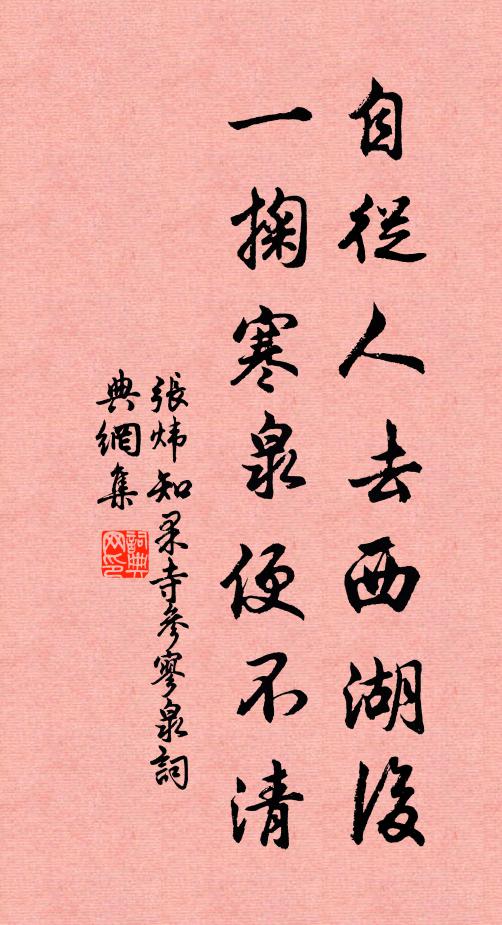 自從人去西湖後
一掬寒泉便不清
張煒知果寺參寥泉詞
典網集
詞典網印